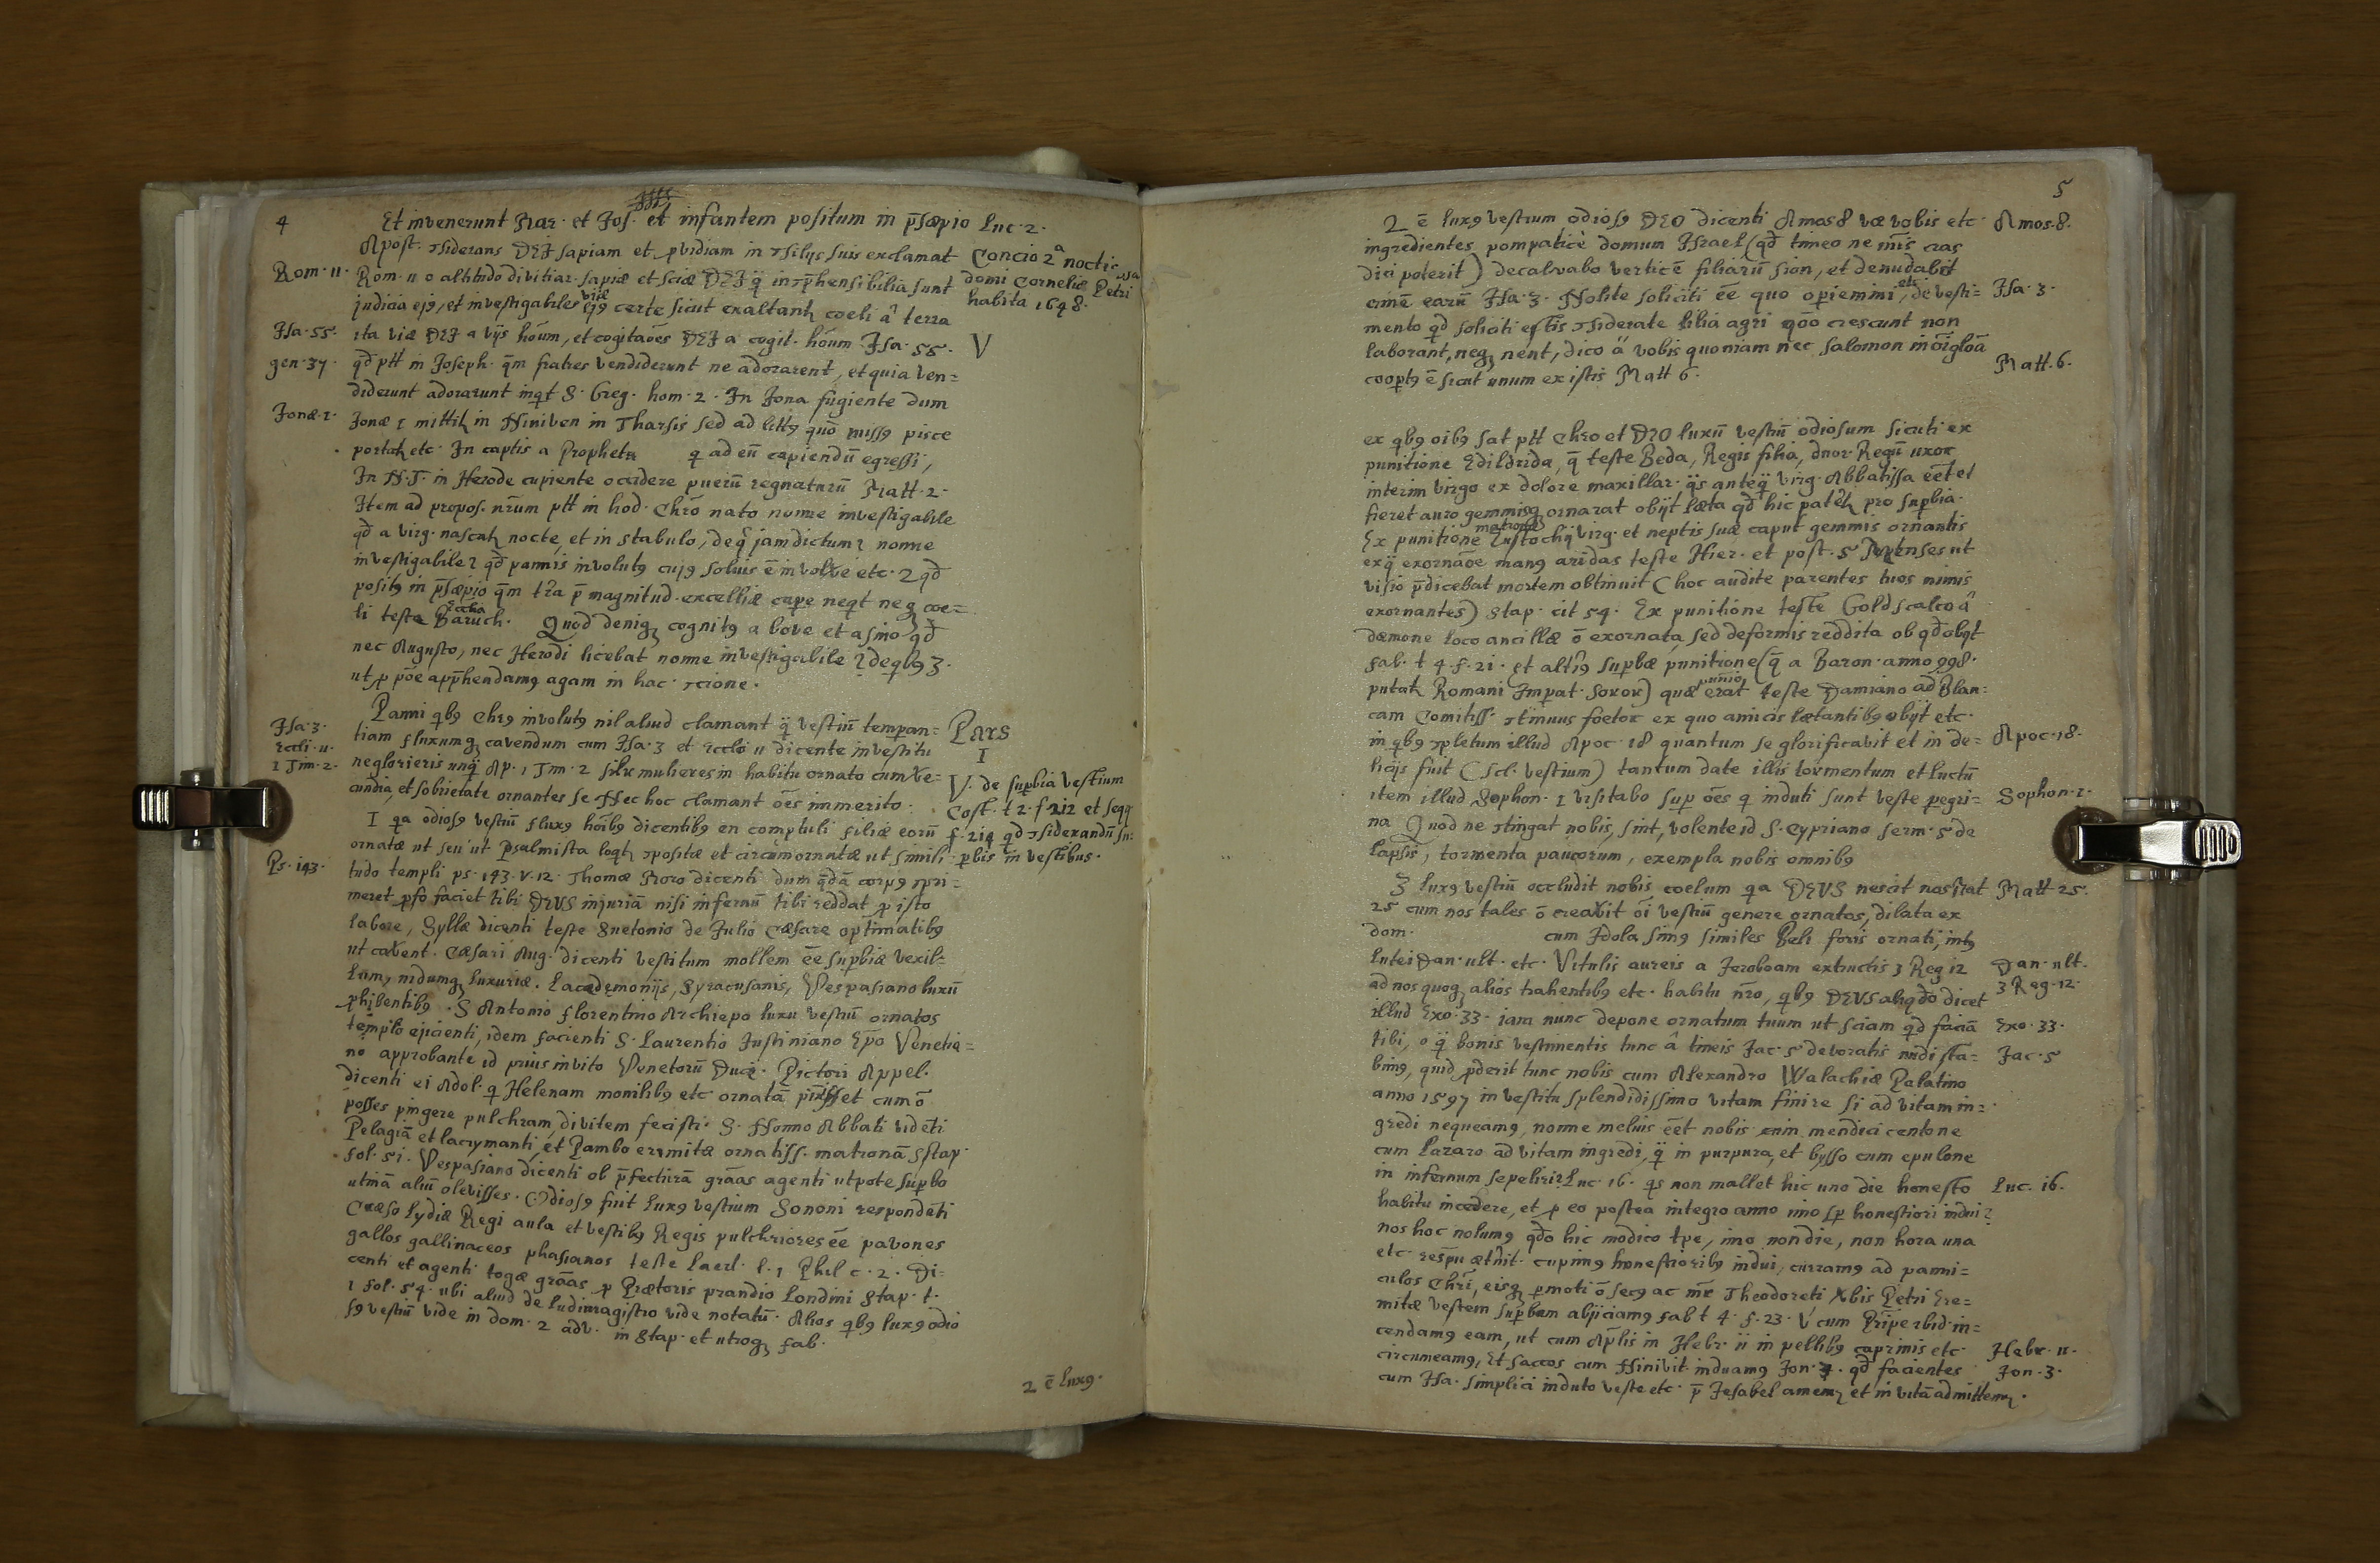 4
Et invenerunt Mar. et Jos. et infantem positum in p̄sæpio Luc. 2.
Apost. ɔsiderans DEI sapiam et ꝓvidiam in ɔsilijs suis exclamat
Concio 2ᵃ noctis
domi Corneliæ Petri
habita 1648.
Rom. 11.
Rom. 11 o altitudo divitiar. sapiæ et sciæ DEI q̄ inɔp̄hensibilia sunt
judicia ejꝰ, et investigabiles viæ ejꝰ certe sicut exaltantr coeli â terra
Isa. 55.
ita viæ DEI a vijs hōum, et cogitaōes DEI a cogit. hōum Isa. 55.
V
gen. 37.
qđ ptt in Joseph. q̄m fratres vendiderunt ne adorarent, et quia ven=
diderunt adorarunt inqt S. Greg. hom. 2. In Jona fugiente dum
Jonæ. 1.
Jonæ 1 mittitr in Niniven in Tharsis sed ad littꝰ quō missꝰ pisce
portatr etc. In captis a Propheta q ad eū capiendū egressi,
In N. T. in Herode cupiente occidere puerū regnaturū Matt. 2.
Item ad propos. nrūm ptt in hod. Chrō nato nonne investigabile
qđ a virg. nascatr nocte, et in stabulo, de q̂ jam dictum? nonne
investigabile? qđ pannis involutꝰ cujꝰ soluis ē involve etc. 2 qđ
positꝰ in p̄sæpio q̄m tr̄a p̄ magnitud. excelliæ cape neqt neqꝫ coe=
li teste Eccha Baruch. Quod deniqꝫ cognitꝰ a bove et asino qđ
nec Augusto, nec Herodi licebat nonne investigabile? de qbꝰ 3.
ut ꝓ pōe app̄hendamꝰ agam in hac ɔcione.
Panni qbꝰ Chrꝰ involutꝰ nil aliud clamant q̄ vestiū temperan=
Pars
I
Isa. 3.
Eccli. 11.
1 Tim. 2.
tiam fluxumqꝫ cavendum cum Isa. 3 et Eccló 11 dicente in vestitu
ne glorieris unq̄ Ap. 1 Tim. 2 silr mulieres in habitu ornato cum ve=
cundia, et sobrietate ornantes se Nec hoc clamant ōes immerito.
V. de supbia vestium
Cost. t 2. f. 212 et seqq
f. 214 qđ ɔsiderandū su:
pbis in vestibus.
I qa odiosꝰ vestiū fluxꝰ hōibꝰ dicentibꝰ en comptuli filiæ eorū
ornatæ ut seu ut Psalmista loqtr ɔpositæ et circumornatæ ut simili
Ps. 143.
tudo templi ps. 143. v. 12. Thomæ Moro dicenti dum q̄dā corpꝰ ɔpri=
meret ꝓfo faciet tibi DEUS injuriā nisi infernū tibi reddat ꝓ isto
labore, Syllæ dicenti teste Suetonio de Julio Cæsare optimatibꝰ
ut cavent. Cæsari Aug. dicenti vestitum mollem ēe supbiæ vexil=
lum, nidumqꝫ luxuriæ. Lacedęmonijs, Syracusanis, Vespasiano luxū
ꝓhibentibꝰ. S Antonio florentino Archiepo luxu vestiū ornatos
templo ejicienti, idem facienti S. Laurentio Justiniano Epō Venetia=
no approbante id prius invito Venetorū Duci. Pictori Appel.
dicenti ei Adol. q Helenam monilibꝰ etc. ornatā pinxisset cum ō
posses pingere pulchram, divitem fecisti. S. Nonno Abbati vidēti
Pelagiā et lacrymanti, et Pambo erimitæ ornatiss. matronā Stap.
fol. 51. Vespasiano dicenti ob p̄fecturā grāas agenti utpote supbo
utinā aliū olevisses. Odiosꝰ fuit luxꝰ vestium Sononi respondēti
Cræso Lydiæ Regi aula et vestibꝰ Regis pulchriores ēe pavones
gallos gallinaceos phasianos teste Laerl. l. 1 Phil c. 2. Di=
centi et agenti togæ grāas ꝓ Prætoris prandio Londini Stap. t.
1 fol. 54. ubi aliud de ludimagistro vide notatū. Alios qbꝰ luxꝰ odio
sꝰ vestiū vide in dom. 2 adv. in Stap. et utroqꝫ fab.
2 ē luxꝰ.
5
2 ē luxꝰ vestium odiosꝰ DEO dicenti Amos 8 væ vobis etc.
Amos. 8.
ingredientes pompaticè domum Israel (qđ timeo ne mīs cras
dici poterit) decalvabo verticē filiarū sion, et denudabit
crinē earū Isa. 3. Nolite soliciti ēe quo opiemini, etc de vesti=
Isa. 3.
mento qđ soliciti estis ɔsiderate lilia agri qōo crescunt non
laborant, neqꝫ nent, dico āͧ vobis quoniam nec Salomon in ōi gloā
coopertꝰ ē sicut unum ex istis Matt 6.
Matt. 6.
ex qbꝰ oibꝰ sat ptt Chro et DEO luxū vestiū odiosum sicuti ex
punitione Edildrida, q̄ teste Beda, Regis filia, duor. Regū uxor
interim virgo ex dolore maxillar. qs anteq̄ virg. Abbatissa eēt et
fieret auro gemmisqꝫ ornarat obijt læta qđ hic patetr pro supbia.
Ex punitione matronæ Eustochij virg. et neptis suæ caput gemmis ornantis
exq̄ exornaōe manꝰ aridas teste Hier. et post. 5 menses ut
visio p̄dicebat mortem obtinuit (hoc audite parentes tuos nimis
exornantes) Stap. cit 54. Ex punitione teste Goldscalco â
dæmone loco ancillæ ō exornata, sed deformis reddita ob qđ obijt
fab. t 4. f. 21. et altiꝰ supbæ punitione (q̄ a Baron. anno 998.
putatr Romani Impat. soror) quæ erat teste Damiano ad Blan=
cam Comitiss. ɔtinuus foetor ex quo amicis lætantibꝰ obijt etc.
in qbꝰ ɔpletum illud Apoc. 18 quantum se glorificavit et in de=
Apoc. 18.
licijs fuit (scl. vestium) tantum date illis tormentum et luctū
item illud Sophon. 1 visitabo sup ōes q induti sunt veste pegri=
Sophon. 1.
na Quod ne ɔtingat nobis, sint, volente id S. Cypriano serm. 5 de
lapsis, tormenta paucorum, exempla nobis omnibꝰ
3 luxꝰ vestiū occludit nobis coelum qa DEUS nescit nos Mat
Matt 25.
25 cum nos tales ō creavit ōi vestiū genere ornatos, dilata ex
dom. cum Idola simꝰ similes Beli foris ornati, intꝰ
lutei Dan. ult. etc. Vitulis aureis a Jeroboam extructis 3 Reg 12
Dan. ult.
3 Reg. 12.
ad nos quoqꝫ alios trahentibꝰ etc. habitu nrō, qbꝰ DEUS aliqdō dicet
illud Exo. 33. iam nunc depone ornatum tuum ut sciam qđ faciā
Exo. 33.
tibi, o q̄ bonis vestimentis tunc â tineis Jac. 5 devoratis nudi sta=
Jac. 5
bimꝰ, quid ꝓderit tunc nobis cum Alexandro Walachiæ Palatino
anno 1597 in vestitu splendidissimo vitam finire si ad vitam in=
gredi nequeamꝰ, nonne melius ēet nobis cum mendici centone
cum Lazaro ad vitam ingredi, q̄ in purpura, et bysso cum epulone
in infernum sepeliri? Luc. 16. qs non mallet hic uno die honesto
Luc. 16.
habitu incedere, et ꝓ eo postea integro anno imo sp̄ honestiori indui?
nos hoc nolumꝰ qđo hic modico tpe, imo non die, non hora una
etc. respū ætnit. cupimꝰ honestioribꝰ indui, curramꝰ ad panni=
culos Chrī, eisqꝫ ꝑmoti ō secꝰ ac mr̄ Theodoreti Xbis Petri Ere=
mitæ vestem supbam abijciamꝰ fab t 4. f. 23. V cum in=
cendamꝰ eam, ut cum Aplīs in Hebr. 11 in pellibꝰ caprinis etc.
Hebr. 11.
circumeamꝰ, Et saccos cum Ninivit. induamꝰ Jon. 3. qđ facientes
Jon. 3.
cum Isa. simplici induto veste etc. p̄ Jesabel amemr et in vitā admittemr.